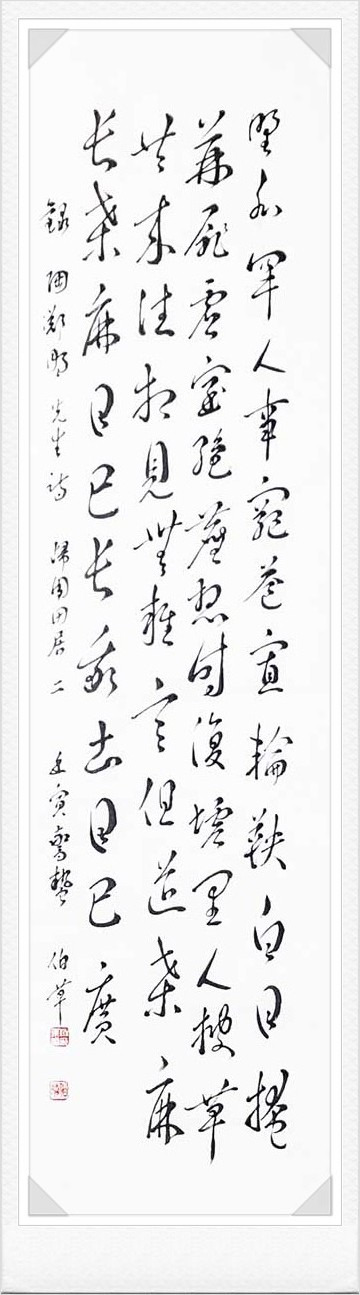 野外罕人事窮巷寡輪鞅白日掩
荊扉虛室絕塵想時復墟里人披草
共來往相見無雜言但道桑麻
长桑麻日已长我土日已廣
錄陶淵明先生詩 歸園田居二 壬寅驚蟄 伯